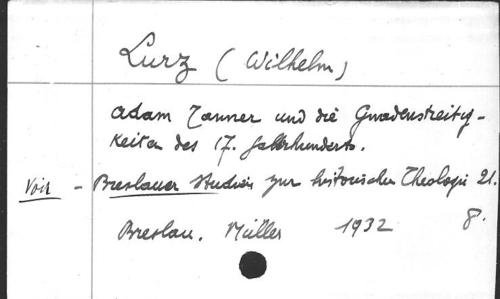 Lurz (Wilhelm)
Adam Tanner und die Gnadenstreitig-
keiten des 17. Jahrhunderts.
Voir - Breslauer Studien zur historischen Theologie 21.
Breslau. Müller 1932 8.